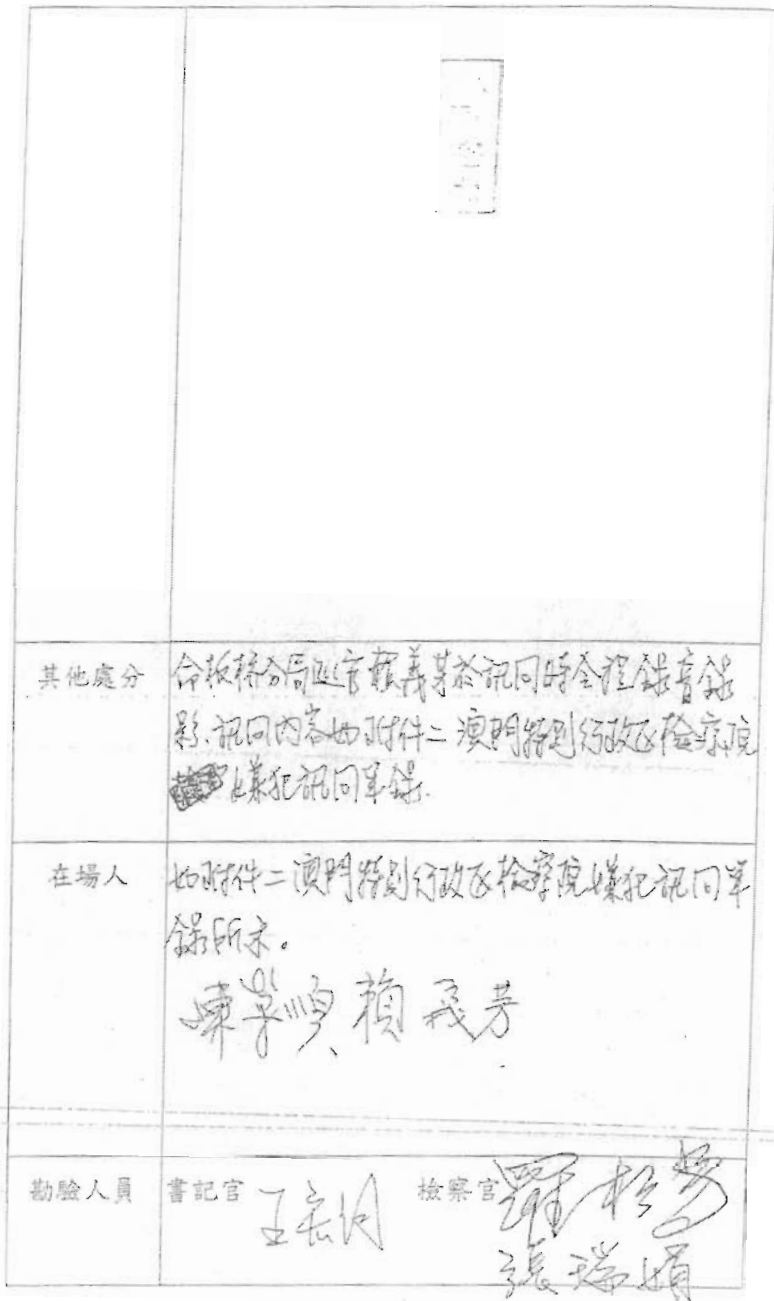 其他處分
命板橋分局巡官賴義芳於訊問時全程錄音錄
影.訊問內容如附件二澳門特別行政區檢察院
嫌犯訊問筆錄.
在場人
如附件二澳門特別行政區檢察院嫌犯訊問筆
錄所示。
賴義芳
勘驗人員
書記官
檢察官
張瑞娟